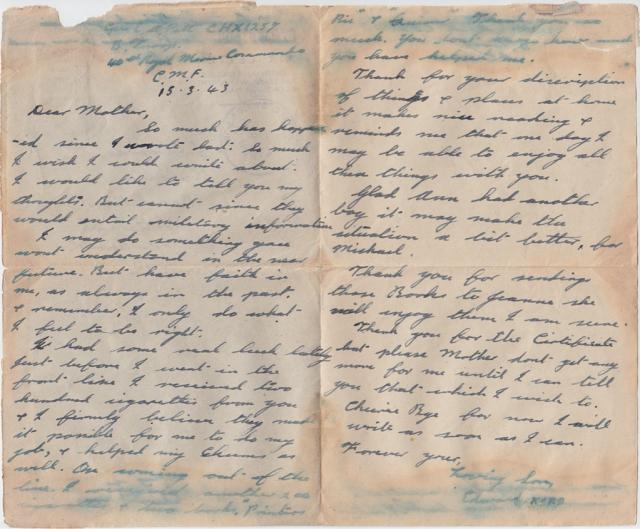 CHX1257
40th Royal Marine Commando
C.M.F.
15.3.43
Dear Mother,
So much has happen
-ed since I wrote last. So much
I wish I could write about.
I would like to tell you my
thoughts. But cannot since they
would entail military information
I may do something you
wont understand in the near
future. But have faith in
me, as always in the past,
& remember, I only do what
I feel to be right.
had some real luck lately
Just before I went in the
front line I received two
hundred cigarettes from you
& I firmly believe they made
it posible for me to do my
job, & helped my Chums as
well. On coming out of the
line I received another
& two books,
Thank you so
much. You dont know how much
you have helped me.
Thank for your discription
of things & places at home
it makes nice reading &
reminds me that one day I
may be able to enjoy all
then things with you.
Glad Ann had another
boy it may make the
situation a bit better, for
Michael.
Thank you for sending
those Books to Jeanne she
will enjoy them I am sure.
Thank you for the Certificate
but please Mother dont get any
more for me until I can tell
you that which I wish to.
Cheerie Bye for now I will
write as soon as I can.
Forever your,
Loving Son
Edward